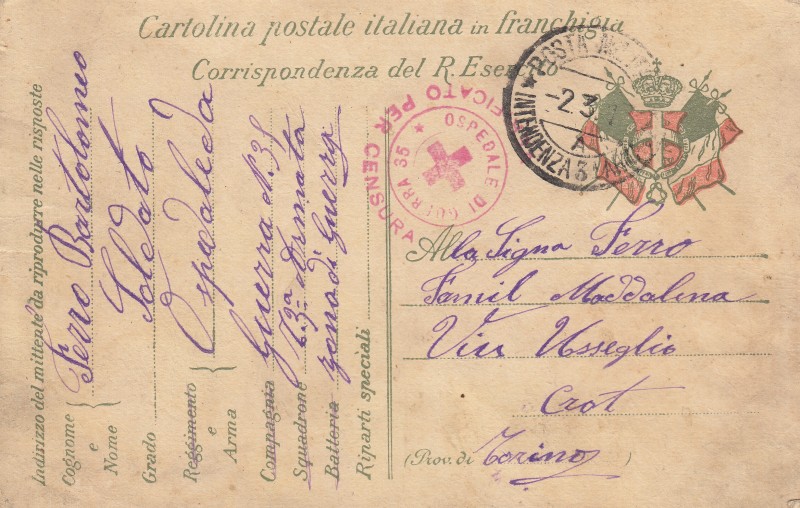 Cartolina postale italiana in franchigia
Corrispondenza del R. Esercito
POSTA
-2.3.
INTENDENZA 3
A
VERIFICATO PER CENSURA
OSPEDALE DI GUERRA 35
Indirizzo del mittente da riprodurre nelle risposte
Cognome e Nome Ferro Bartolomeo
Grado Soldato
Reggimento e Arma Ospedale da
Compagnia Guerra N. 35
Squadrone 3ª Armata
Batteria zona di Guerra
Riparti speciali
Alla Signa Ferro
Famil Maddalena
Via Usseglio
Crot
(Prov. di Torino)